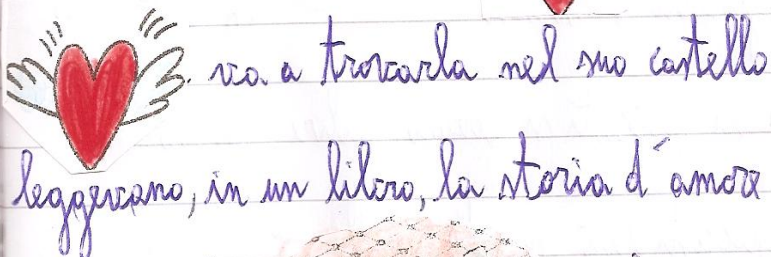 va a trovarla nel suo castello
leggevano, in un libro, la storia d'amore